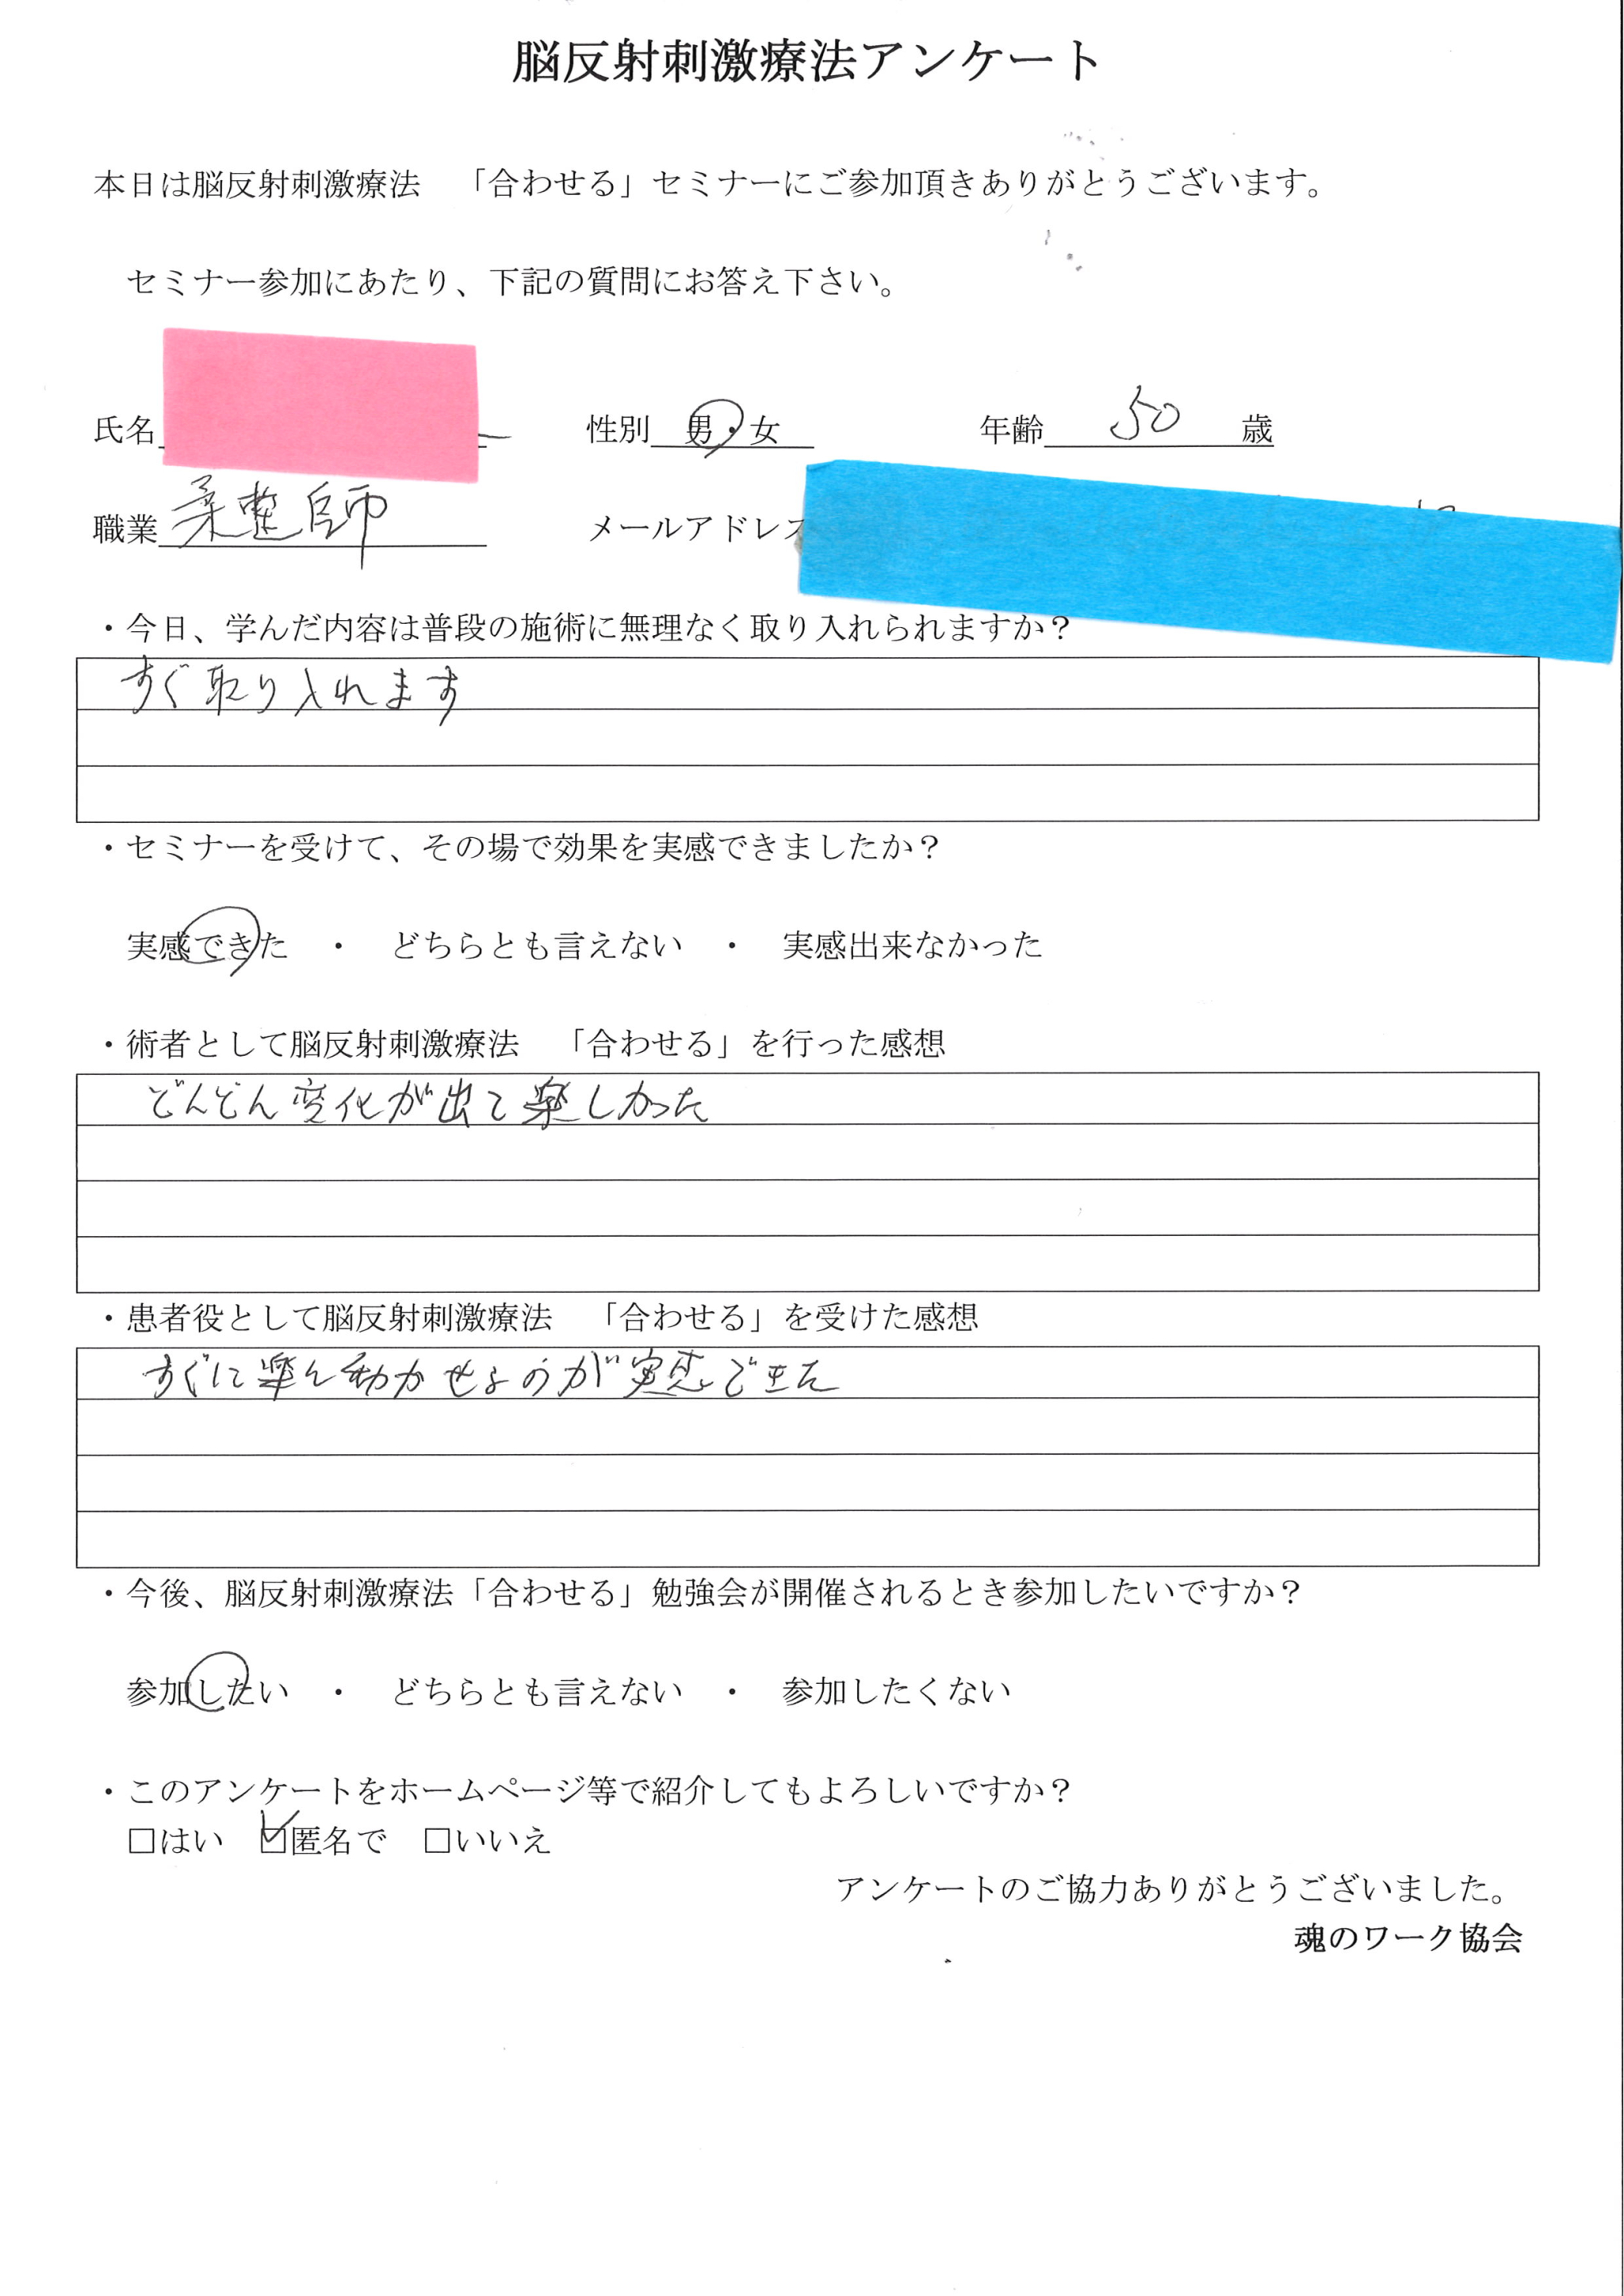 脳反射刺激療法アンケート
本日は脳反射刺激療法　「合わせる」セミナーにご参加頂きありがとうございます。
セミナー参加にあたり、下記の質問にお答え下さい。
氏名　性別　男・女　年齢　50　歳
職業　柔整師　メールアドレス
・今日、学んだ内容は普段の施術に無理なく取り入れられますか？
すぐ取り入れます
・セミナーを受けて、その場で効果を実感できましたか？
実感できた　・　どちらとも言えない　・　実感出来なかった
・術者として脳反射刺激療法　「合わせる」を行った感想
どんどん変化が出て楽しかった
・患者役として脳反射刺激療法　「合わせる」を受けた感想
すぐに楽に動かせるのが実感できた
・今後、脳反射刺激療法「合わせる」勉強会が開催されるとき参加したいですか？
参加したい　・　どちらとも言えない　・　参加したくない
・このアンケートをホームページ等で紹介してもよろしいですか？
□はい　☑匿名で　□いいえ
アンケートのご協力ありがとうございました。
魂のワーク協会